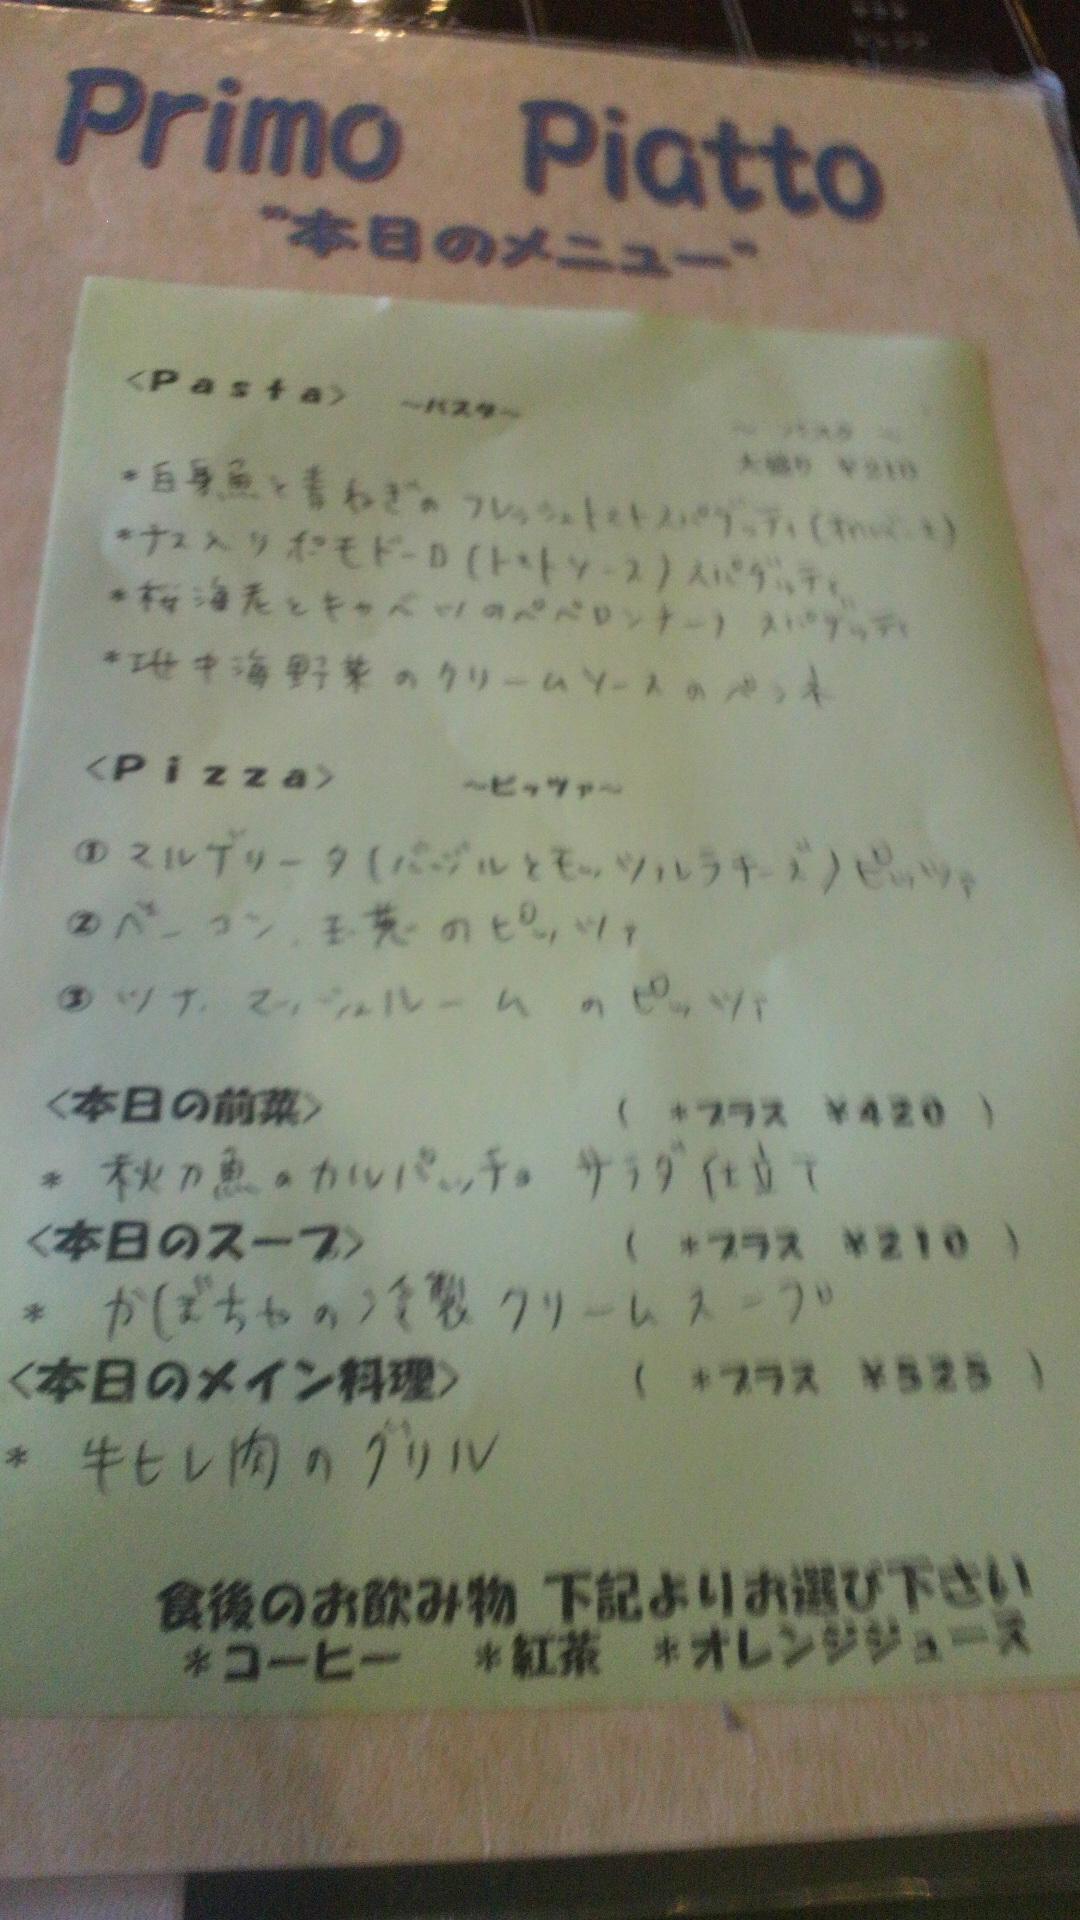 Primo Piatto
"本日のメニュー"
<Pasta> ～パスタ～
～ パスタ ～
大盛り ￥210
*白身魚と青ねぎの フレッシュトマトスパゲッティ(オイルベース)
*ナス入りポモドーロ(トマトソース)スパゲッティ
*桜海老とキャベツのペペロンチーノ スパゲッティ
*地中海野菜のクリームソースのペンネ
<Pizza> ～ピッツァ～
①マルゲリータ(バジルとモッツァルラチーズ)ピッツァ
②ベーコン、玉葱のピッツァ
③ツナ、マッシュルームのピッツァ
<本日の前菜> ( *プラス ￥420 )
* 秋刀魚のカルパッチョ サラダ仕立て
<本日のスープ> ( *プラス ￥210 )
* かぼちゃの冷製クリームスープ
<本日のメイン料理> ( *プラス ￥525 )
* 牛ヒレ肉のグリル
食後のお飲み物 下記よりお選び下さい
*コーヒー *紅茶 *オレンジジュース